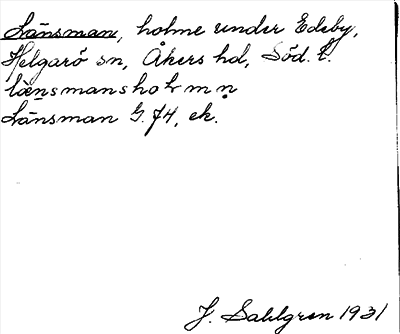 Länsman, holme under Edeby,
Helgarö sn, Åkers hd, Söd. l.
lä̀n̥smanshołmn̥
Länsman G. 74, ek.
J. Sahlgren 1931